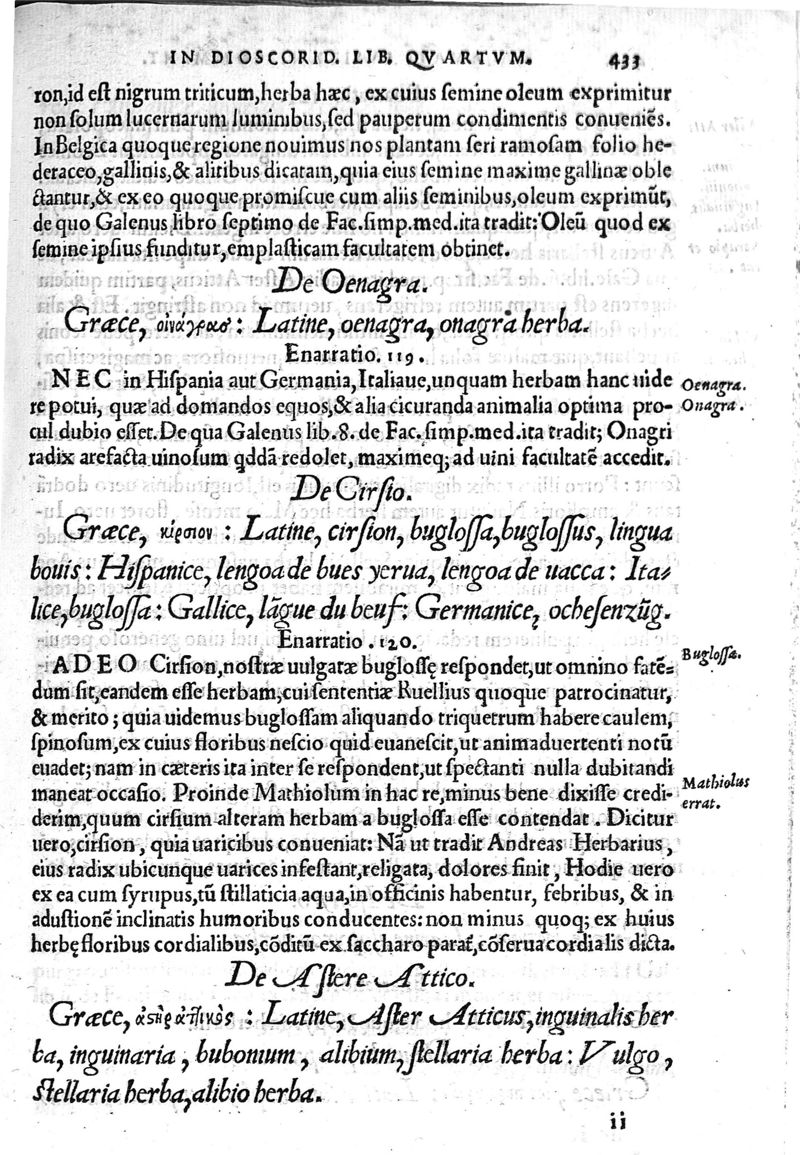 IN DIOSCORID. LIB. QVARTVM. 433
ron,id eſt nigrum triticum,herba hæc, ex cuius ſemine oleum exprimitur
non ſolum lucernarum luminibus,ſed pauperum condimentis conueniēs.
In Belgica quoque regione nouimus nos plantam ſeri ramoſam folio he-
deraceo,gallinis,& alitibus dicatam,quia eius ſemine maxime gallinæ oble
ctantur,& ex eo quoque promiſcue cum aliis ſeminibus,oleum exprimūt,
de quo Galenus libro ſeptimo de Fac.ſimp.med.ita tradit: Oleū quod ex
ſemine ipſius funditur,emplaſticam facultatem obtinet.
De Oenagra.
Græce, οἰνάγρα : Latine, oenagra, onagra herba.
Enarratio. 119.
NEC in Hiſpania aut Germania,Italiaue,unquam herbam hanc uide
Oenagra.
re potui, quæ ad domandos equos,& alia cicuranda animalia optima pro-
Onagra.
cul dubio eſſet. De qua Galenus lib.8. de Fac. ſimp.med.ita tradit; Onagri
radix arefacta uinoſum qddā redolet, maximeq; ad uini facultatē accedit.
De Cirſio.
Græce, κίρσιον : Latine, cirſion, bugloſſa,bugloſſus, lingua
bouis : Hiſpanice, lengoa de bues yerua, lengoa de uacca : Ita-
lice,bugloſſa : Gallice, lāgue du beuf : Germanice, ocheſenzūg.
Enarratio . 120.
ADEO Cirſion,noſtræ uulgatæ bugloſſę reſpondet,ut omnino fatē-
Bugloſſa.
dum ſit,eandem eſſe herbam,cui ſententiæ Ruellius quoque patrocinatur,
& merito ; quia uidemus bugloſſam aliquando triquetrum habere caulem,
ſpinoſum,ex cuius floribus neſcio quid euaneſcit,ut animaduertenti notū
euadet; nam in cæteris ita inter ſe reſpondent,ut ſpectanti nulla dubitandi
maneat occaſio. Proinde Mathiolum in hac re,minus bene dixiſſe credi-
Mathiolus
errat.
derim,quum cirſium alteram herbam a bugloſſa eſſe contendat . Dicitur
uero,cirſion, quia uaricibus conueniat: Nā ut tradit Andreas Herbarius,
eius radix ubicunque uarices infeſtant,religata, dolores finit, Hodie uero
ex ea cum ſyrupus,tū ſtillaticia aqua,in officinis habentur, febribus, & in
aduſtionē inclinatis humoribus conducentes: non minus quoq; ex huius
herbę floribus cordialibus,cōditū ex ſaccharo parat,cōſerua cordialis dicta.
De Aſtere Attico.
Græce, ἀστὴρ ἀττικὸς : Latine, Aſter Atticus,inguinalis her
ba, inguinaria, bubonium, alibium, ſtellaria herba : Vulgo,
ſtellaria herba,alibio herba.
ii